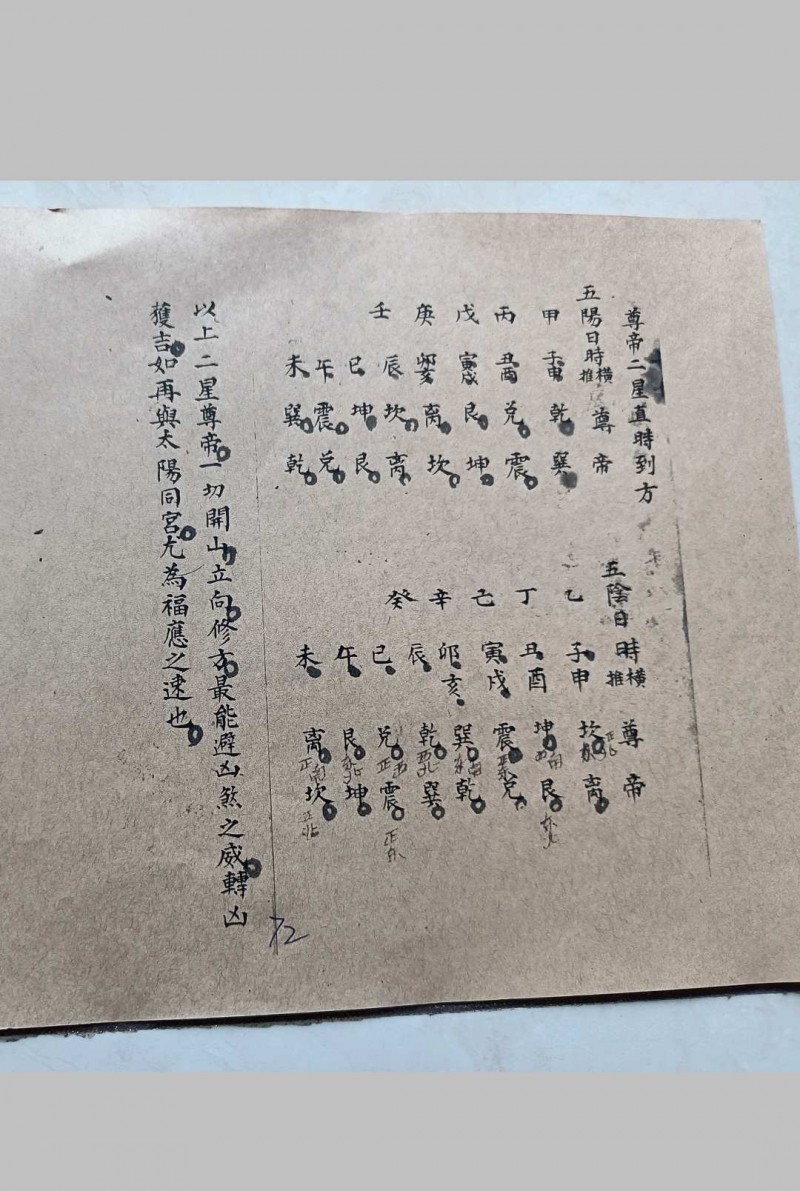 尊帝二星直時到方
五陽日時橫推 尊帝
甲 子申 乾 巽
丙 丑酉 兌 震
戊 寅戌 艮 坤
庚 卯亥 离 坎
壬 辰 坎 离
巳 坤 艮
午 震 兌
未 巽 乾
五陰日時橫推 尊帝
乙 子申 坎 离 正北
丁 丑酉 坤 艮 西南 东北
己 寅戌 震 兌 正东
辛 卯亥 巽 乾 东南
癸 辰 乾 巽 西北
巳 兌 震 正西 正东
午 艮 坤 东北
未 离 坎 正南 正北
以上二星尊帝一切開山立向修方最能避凶煞之威轉凶
獲吉如再與太陽同宮尤為福應之速也
72